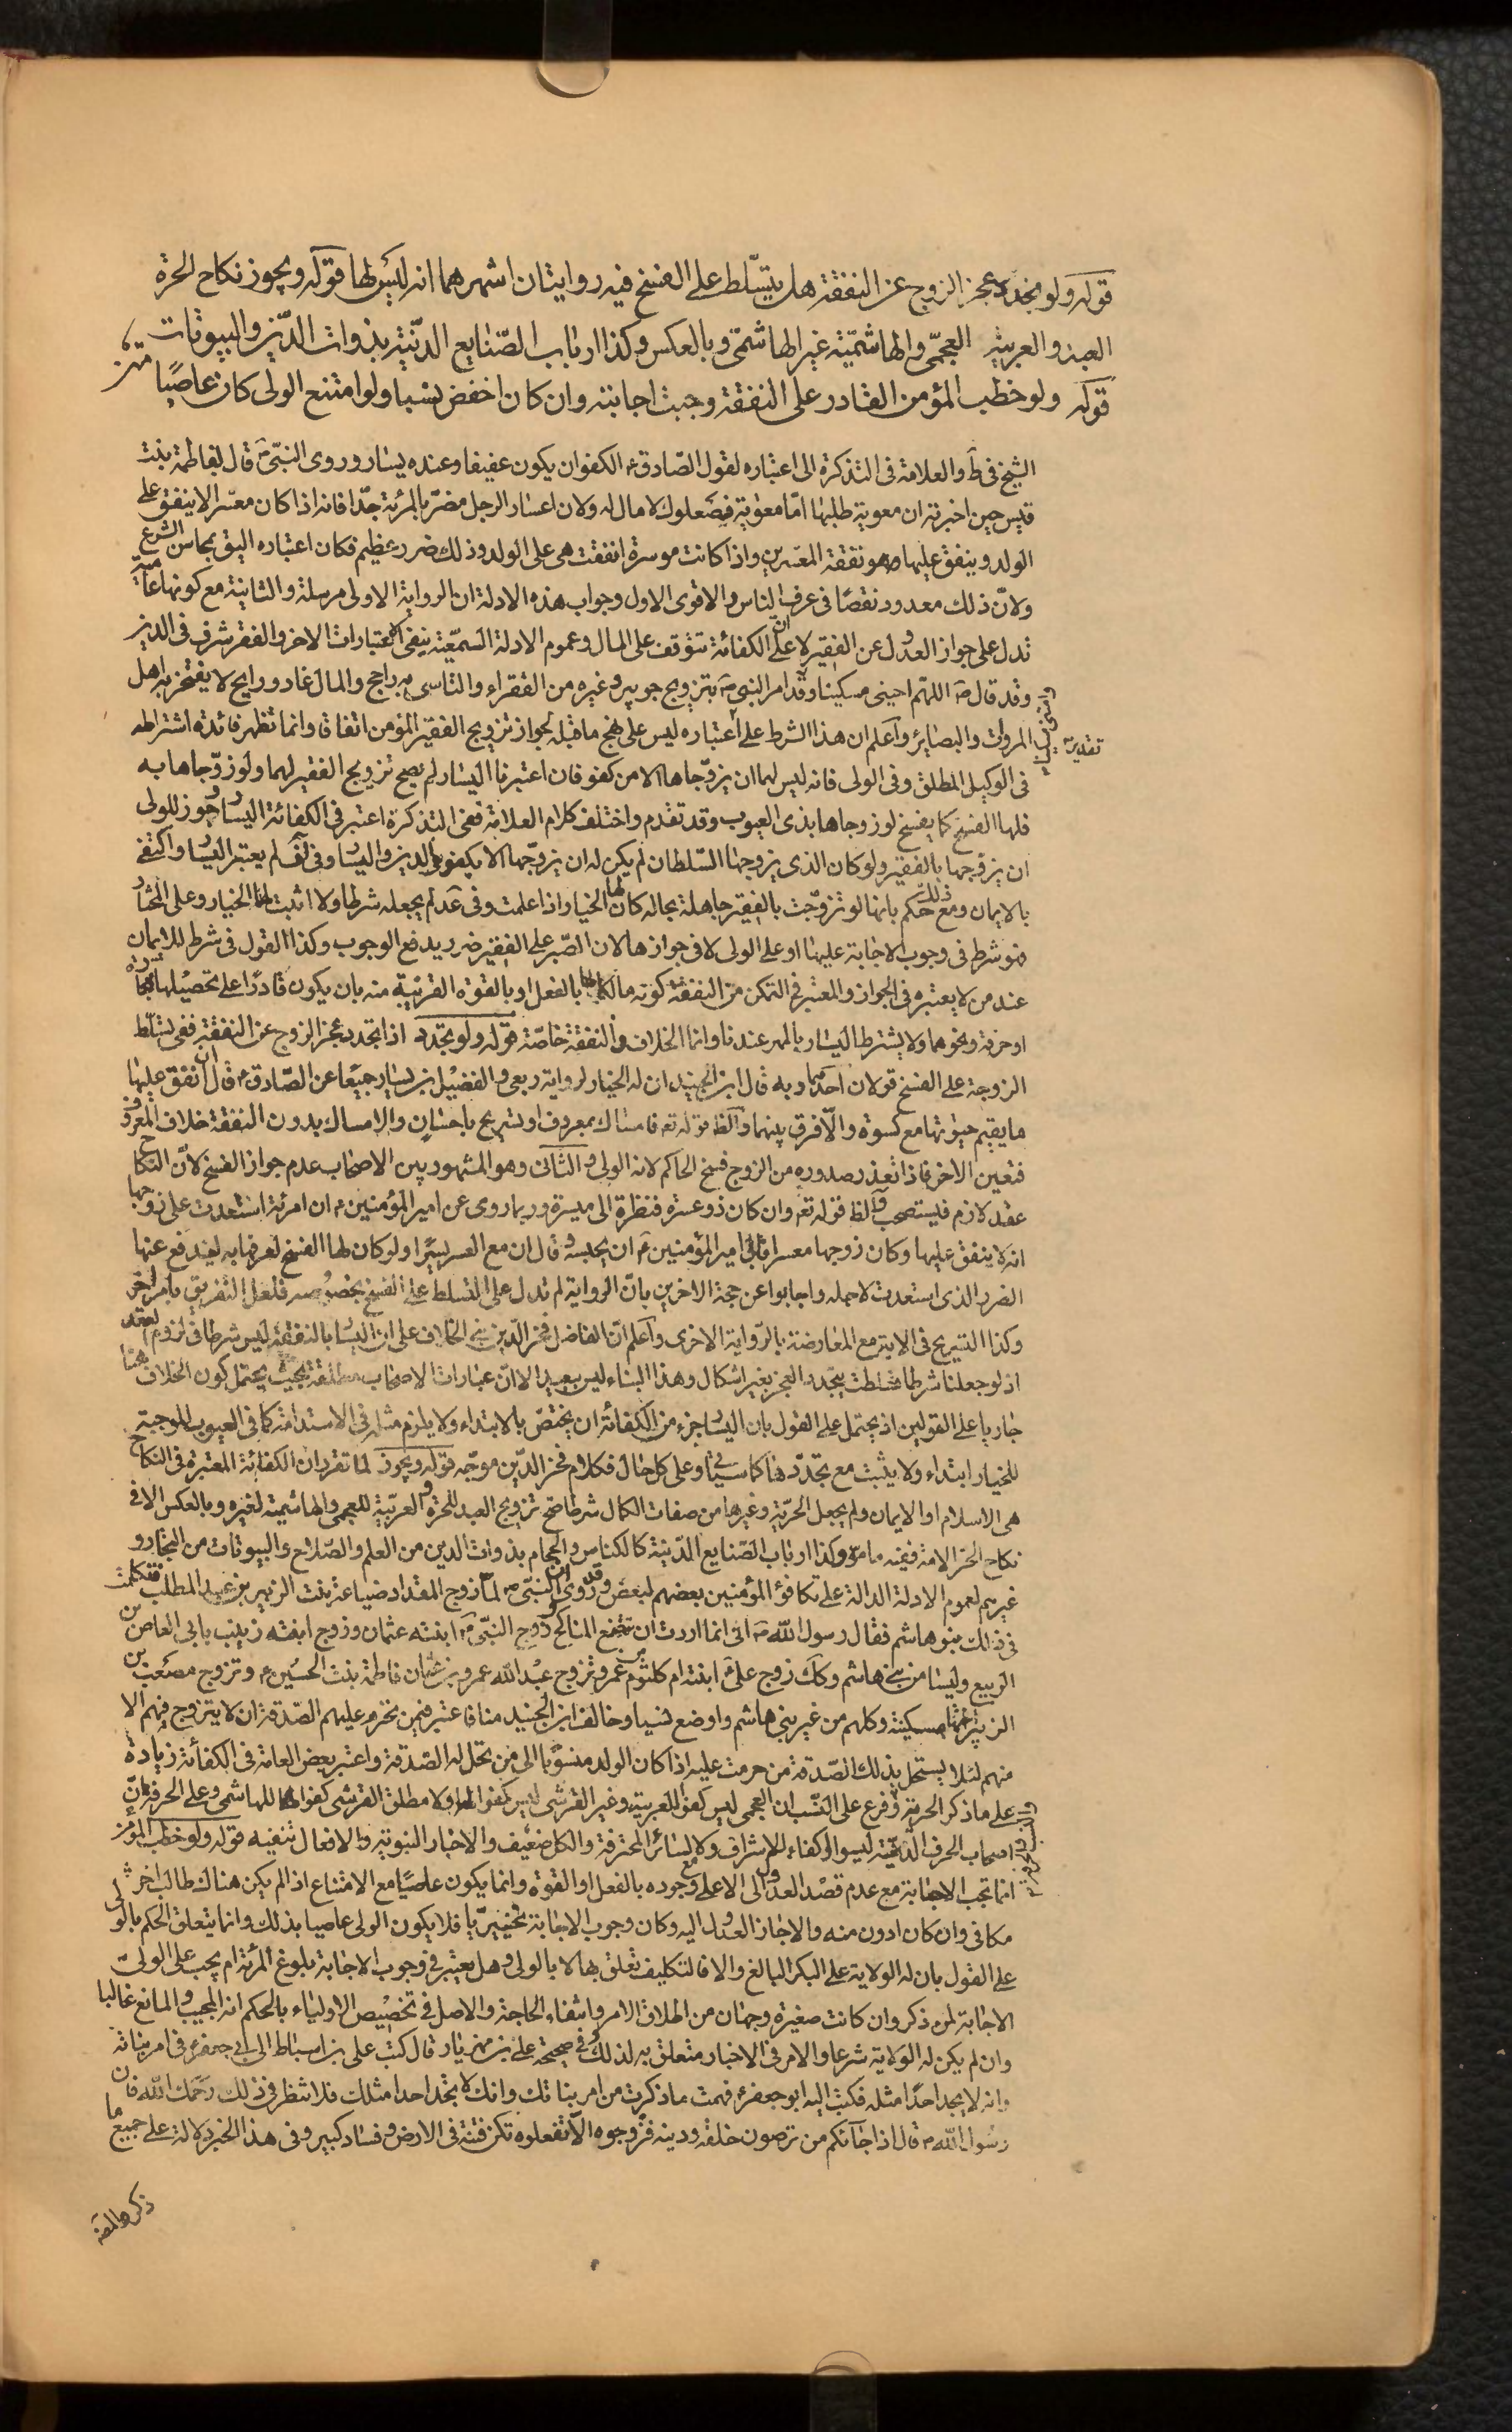 قوله ولو تجدد عجز الزوج عن النفقة هل يتسلط على الفسخ فيه روايتان اشهرهما انه ليس لها قوله ويجوز نكاح الحرة
العبد والعربية العجمي والهاشمية غير الهاشمي وبالعكس وكذا ارباب الصنايع الدنية بذوات الدين والبيوتات
قوله ولو خطب المؤمن القادر على النفقة وجبت اجابته وان كان اخفض نسبا ولو امتنع الولى كان عاصيا
الشيخ فى ط والعلامة فى التذكرة الى اعتباره لقول الصادق ع الكفو ان يكون عفيفا وعنده يسار وروى النبى ص قال لفاطمة بنت
قيس حين اخبرته ان معوية طلبها اما معوية فصعلوك لا مال له ولان اعسار الرجل مضر بالمرئة جدا فانه اذا كان معسرا لا ينفق على
الولد وينفق عليها وهو نفقة المعسرين واذا كانت موسرة انفقت هى على الولد وذلك ضرر عظيم فكان اعتباره اليق بمحاسن الشرع
ولان ذلك معدود نقصا فى عرف الناس والاقوى الاول وجواب هذه الادلة ان الرواية الاولى مرسلة والثانية مع كونها عامية
تدل على جواز العدول عن الفقير لا على ان الكفائة تتوقف على المال وعموم الادلة السمعية ينفى الاعتبارات الاخر والفقر شرف فى الدين
وقد قال ص اللهم احينى مسكينا وقد امر النبى ص بتزويج جويبر وغيره من الفقراء والتاسى به راجح والمال غاد ورايح لا يفتخر به اهل
المروات والبصاير واعلم ان هذا الشرط على اعتباره ليس على نهج ما قبله لجواز تزويج الفقير المؤمن اتفاقا وانما تظهر فائدة اشتراطه
فى الوكيل المطلق وفى الولى فانه ليس لهما ان يزوجاها الا من كفو فان اعتبرنا اليسار لم يصح تزويج الفقير لهما ولو زوجاها به
فلها الفسخ كما يفسخ لو زوجاها بذى العيوب وقد تقدم واختلف كلام العلامة ففى التذكرة اعتبر فى الكفائة اليسار وجوز للولى
ان يزوجها بالفقير ولو كان الذى يزوجها السلطان لم يكن له ان يزوجها الا بكفو فى الدين واليسار وفى لف لم يعتبر اليسار واكتفى
بالايمان ومع ذلك حكم بانها لو تزوجت بالفقير جاهلة بحاله كان لها الخيار اذا علمت وفى عد لم يجعله شرطا ولا اثبت لها الخيار وعلى المختار
هو شرط فى وجوب الاجابة عليها او على الولى لا فى جوازها لان الصبر على الفقير ضرر يدفع الوجوب وكذا القول فى شرط الايمان
عند من لا يعتبره فى الجواز والمعتبر فى التمكن من النفقة كونه مالكا لها بالفعل او بالقوة القريبة منه بان يكون قادرا على تحصيلها بتجارة
او حرفة ونحوهما ولا يشترط اليسار بالمهر عندنا وانما الخلاف فى النفقة خاصة قوله ولو تجدد اذا تجدد عجز الزوج عن النفقة ففى تسلط
الزوجة على الفسخ قولان احدهما وبه قال ابن الجنيد ان لها الخيار لرواية ربعى والفضيل بن يسار جميعا عن الصادق ع قال ان انفق عليها
ما يقيم حيوتها مع كسوة والا فرق بينهما والظ قوله تع فامساك بمعروف او تسريح باحسان والامساك بدون النفقة خلاف المعروف
فتعين الاخر فاذا تعذر صدوره من الزوج فسخ الحاكم لانه الولى والثانى وهو المشهور بين الاصحاب عدم جواز الفسخ لان النكاح
عقد لازم فيستصحب والظ قوله تع وان كان ذو عسرة فنظرة الى ميسرة وربما روى عن امير المؤمنين ع ان امرئة استعدت على زوجها
انه لا ينفق عليها وكان زوجها معسرا فابى امير المؤمنين ع ان يحبسه وقال ان مع العسر يسرا ولو كان لها الفسخ لعرفها به ليندفع عنها
الضرر الذى استعدت لاجله واجابوا عن حجة الاخرين بان الرواية لم تدل على التسلط على الفسخ بخصوصه فلعل التفريق بامر اخر
وكذا التسريح فى الاية مع المعارضة بالرواية الاخرى واعلم ان الفاضل فخر الدين بنى الخلاف على ان اليسار بالنفقة ليس شرطا فى لزوم العقد
اذ لو جعلناه شرطا تسلطت بتجدد العجز بغير اشكال وهذا البناء ليس ببعيد الا ان عبارات الاصحاب مطلقة بحيث يحتمل كون الخلاف هنا
جاريا على القولين اذ يحتمل على القول بان اليسار جزء من الكفائة ان يختص بالابتداء ولا يلزم مثله فى الاستدامة كما فى العيوب الموجبة
للخيار ابتداء ولا يثبت مع تجدده هنا كما سياتى وعلى كل حال فكلام فخر الدين موجه قوله ويجوز لما تقرر ان الكفائة المعتبرة فى النكاح
هى الاسلام او الايمان ولم يجعل الحرية وغيرها من صفات الكمال شرطا صح تزويج العبد للحرة والعربية للعجمى والهاشمية لغيره وبالعكس الا فى
نكاح الحر الامة ففيه ما مر وكذا ارباب الصنايع الدنية كالكناس والحجام بذوات الدين من العلم والصلاح والبيوتات من التجار و
غيرهم لعموم الادلة الدالة على تكافؤ المؤمنين بعضهم لبعض وقد روى ان النبى ص لما زوج المقداد ضباعة بنت الزبير بن عبد المطلب فتكلمت
فى ذلك بنو هاشم فقال رسول الله ص انى انما اردت ان تتضع المناكح وزوج النبى ص ابنته عثمان وزوج ابنته زينب بابى العاص بن
الربيع وليسا من بنى هاشم وكك زوج على ع ابنته ام كلثوم من عمر وتزوج عبد الله بن عمرو بن عثمان فاطمة بنت الحسين ع وتزوج مصعب بن
الزبير اختها سكينة وكلهم من غير بنى هاشم واوضع نسبا وخالف ابن الجنيد منا فاعتبر فيمن تحرم عليهم الصدقة ان لا يتزوج فيهم الا
منهم لئلا يستحل بذلك الصدقة من حرمت عليه اذا كان الولد منسوبا الى من تحل له الصدقة واعتبر بعض العامة فى الكفائة زيادة
على ما ذكر الحرية وفرع على النسب ان العجمى ليس كفوا للعربية وغير القرشى ليس كفوا لها ولا مطلق القرشى كفوا للهاشمى وعلى الحرفة ان
اصحاب الحرف الدنية ليسوا اكفاء للاشراف ولا لسائر المحترفة والكل ضعيف والاخبار النبوية والافعال تنفيه قوله ولو خطب المؤمن
انما تجب الاجابة مع عدم قصد العدول الى الاعلى مع وجوده بالفعل او القوة وانما يكون عاصيا مع الامتناع اذا لم يكن هناك طالب اخر
مكافى وان كان ادون منه والا جاز العدول اليه وكان وجوب الاجابة تخييريا فلا يكون الولى عاصيا بذلك وانما يتعلق الحكم بالولى
على القول بان له الولاية على البكر البالغ والا فالتكليف متعلق بها لا بالولى وهل يعتبر فى وجوب الاجابة بلوغ المرئة ام يجب على الولى
الاجابة لمن ذكر وان كانت صغيرة وجهان من اطلاق الامر وانتفاء الحاجة والاصل فى تخصيص الاولياء بالحكم انه المجيب والمانع غالبا
وان لم يكن له الولاية شرعا والامر فى الاخبار متعلق به لذلك ففى صحيحة على بن مهزيار قال كتب على بن اسباط الى ابى جعفر ع فى امر بناته
وانه لا يجد احدا مثله فكتب اليه ابو جعفر ع فهمت ما ذكرت من امر بناتك وانك لا تجد احدا مثلك فلا تنظر فى ذلك رحمك الله فان
رسول الله ص قال اذا جائكم من ترضون خلقه ودينه فزوجوه الا تفعلوه تكن فتنة فى الارض وفساد كبير وفى هذا الخبر دلالة على جميع ما
ذكره المص